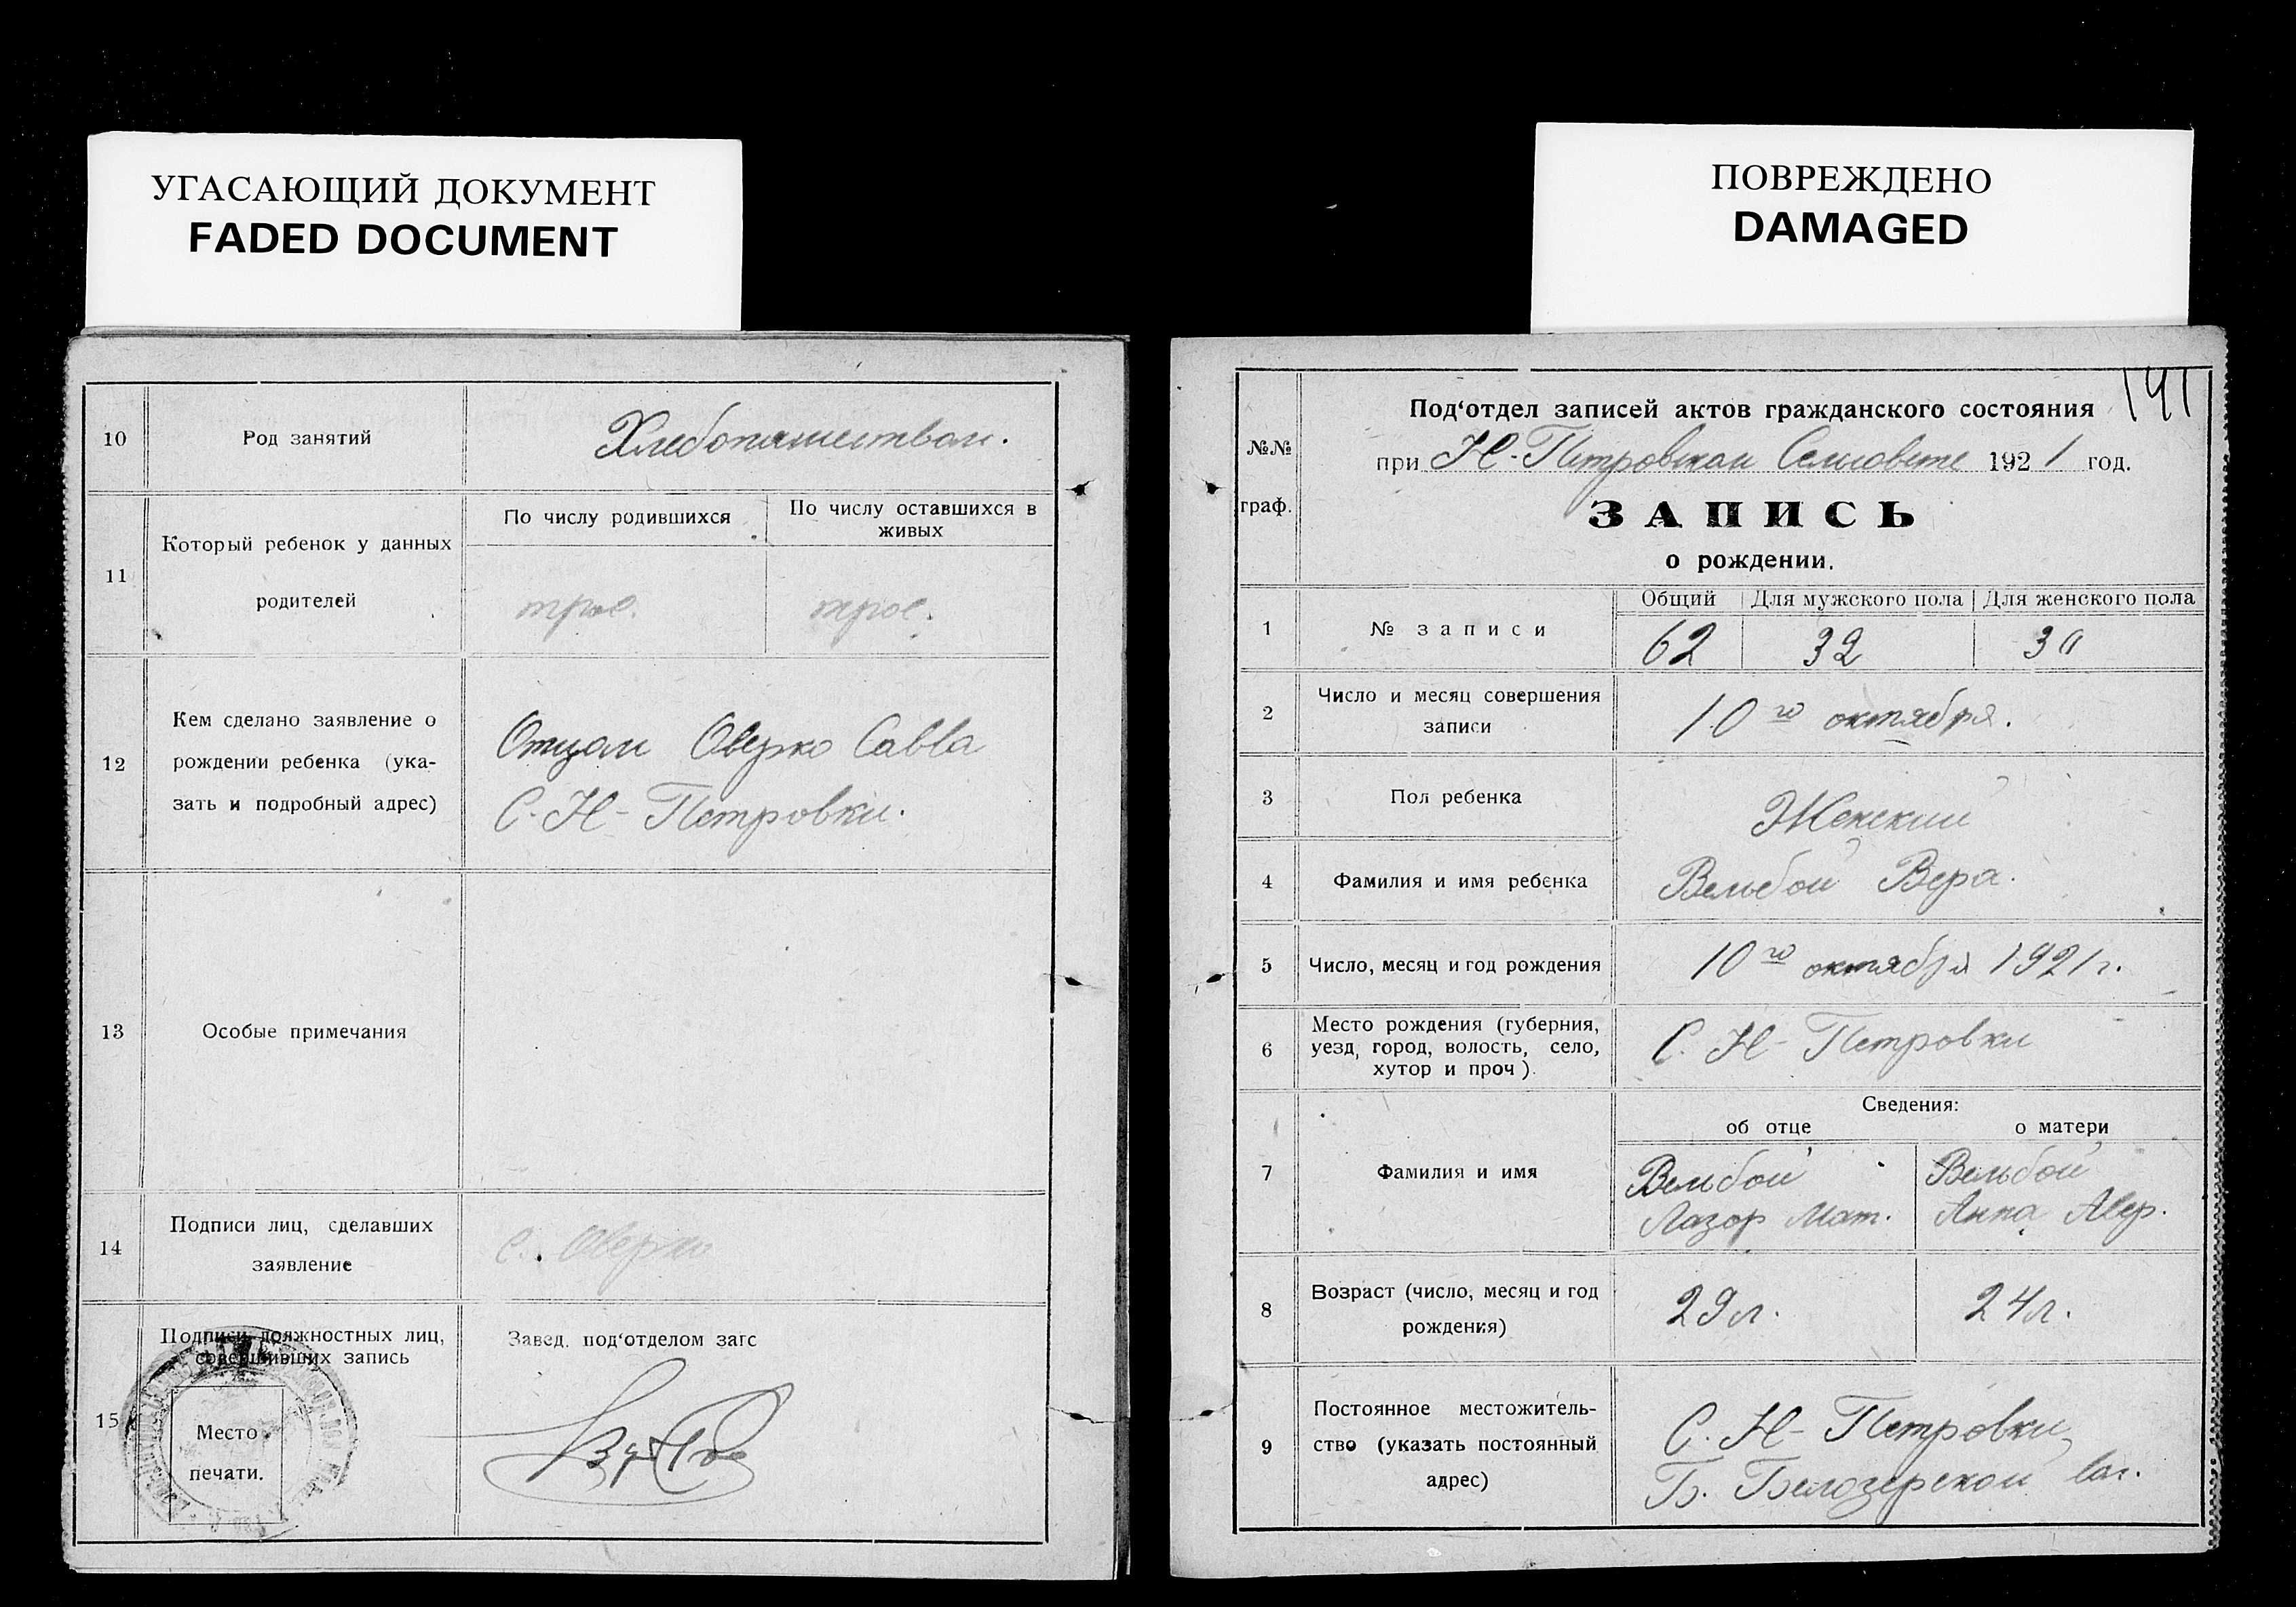 УГАСАЮЩИЙ ДОКУМЕНТ
FADED DOCUMENT
10
Род занятий
Хлебопашеством.
11
Который ребенок у данных
родителей
По числу родившихся
По числу оставшихся в
живых
трое.
трое.
12
Кем сделано заявление о
рождении ребенка (ука-
зать и подробный адрес)
Отцом Оверко Савва
С. Н-Петровки.
13
Особые примечания
14
Подписи лиц, сделавших
заявление
С. Оверко
15
Подписи должностных лиц,
совершивших запись
Место
печати.
Завед. под‘отделом загс
ПОВРЕЖДЕНО
DAMAGED
141
№№
граф.
Под‘отдел записей актов гражданского состояния
при Н-Петровском Сельсовете 1921 год.
ЗАПИСЬ
о рождении.
1
№ записи
Общий
Для мужского пола
Для женского пола
62
32
30
2
Число и месяц совершения
записи
10го октября.
3
Пол ребенка
Женский
4
Фамилия и имя ребенка
Вельбой Вера.
5
Число, месяц и год рождения
10го октября 1921 г.
6
Место рождения (губерния,
уезд, город, волость, село,
хутор и проч).
С. Н-Петровки
Сведения:
об отце
о матери
7
Фамилия и имя
Вельбой
Лазор Мат.
Вельбой
Анна Авер.
8
Возраст (число, месяц и год
рождения)
29 л.
24 л.
9
Постоянное местожитель-
ство (указать постоянный
адрес)
С. Н-Петровки,
Б. Белозерской вол.